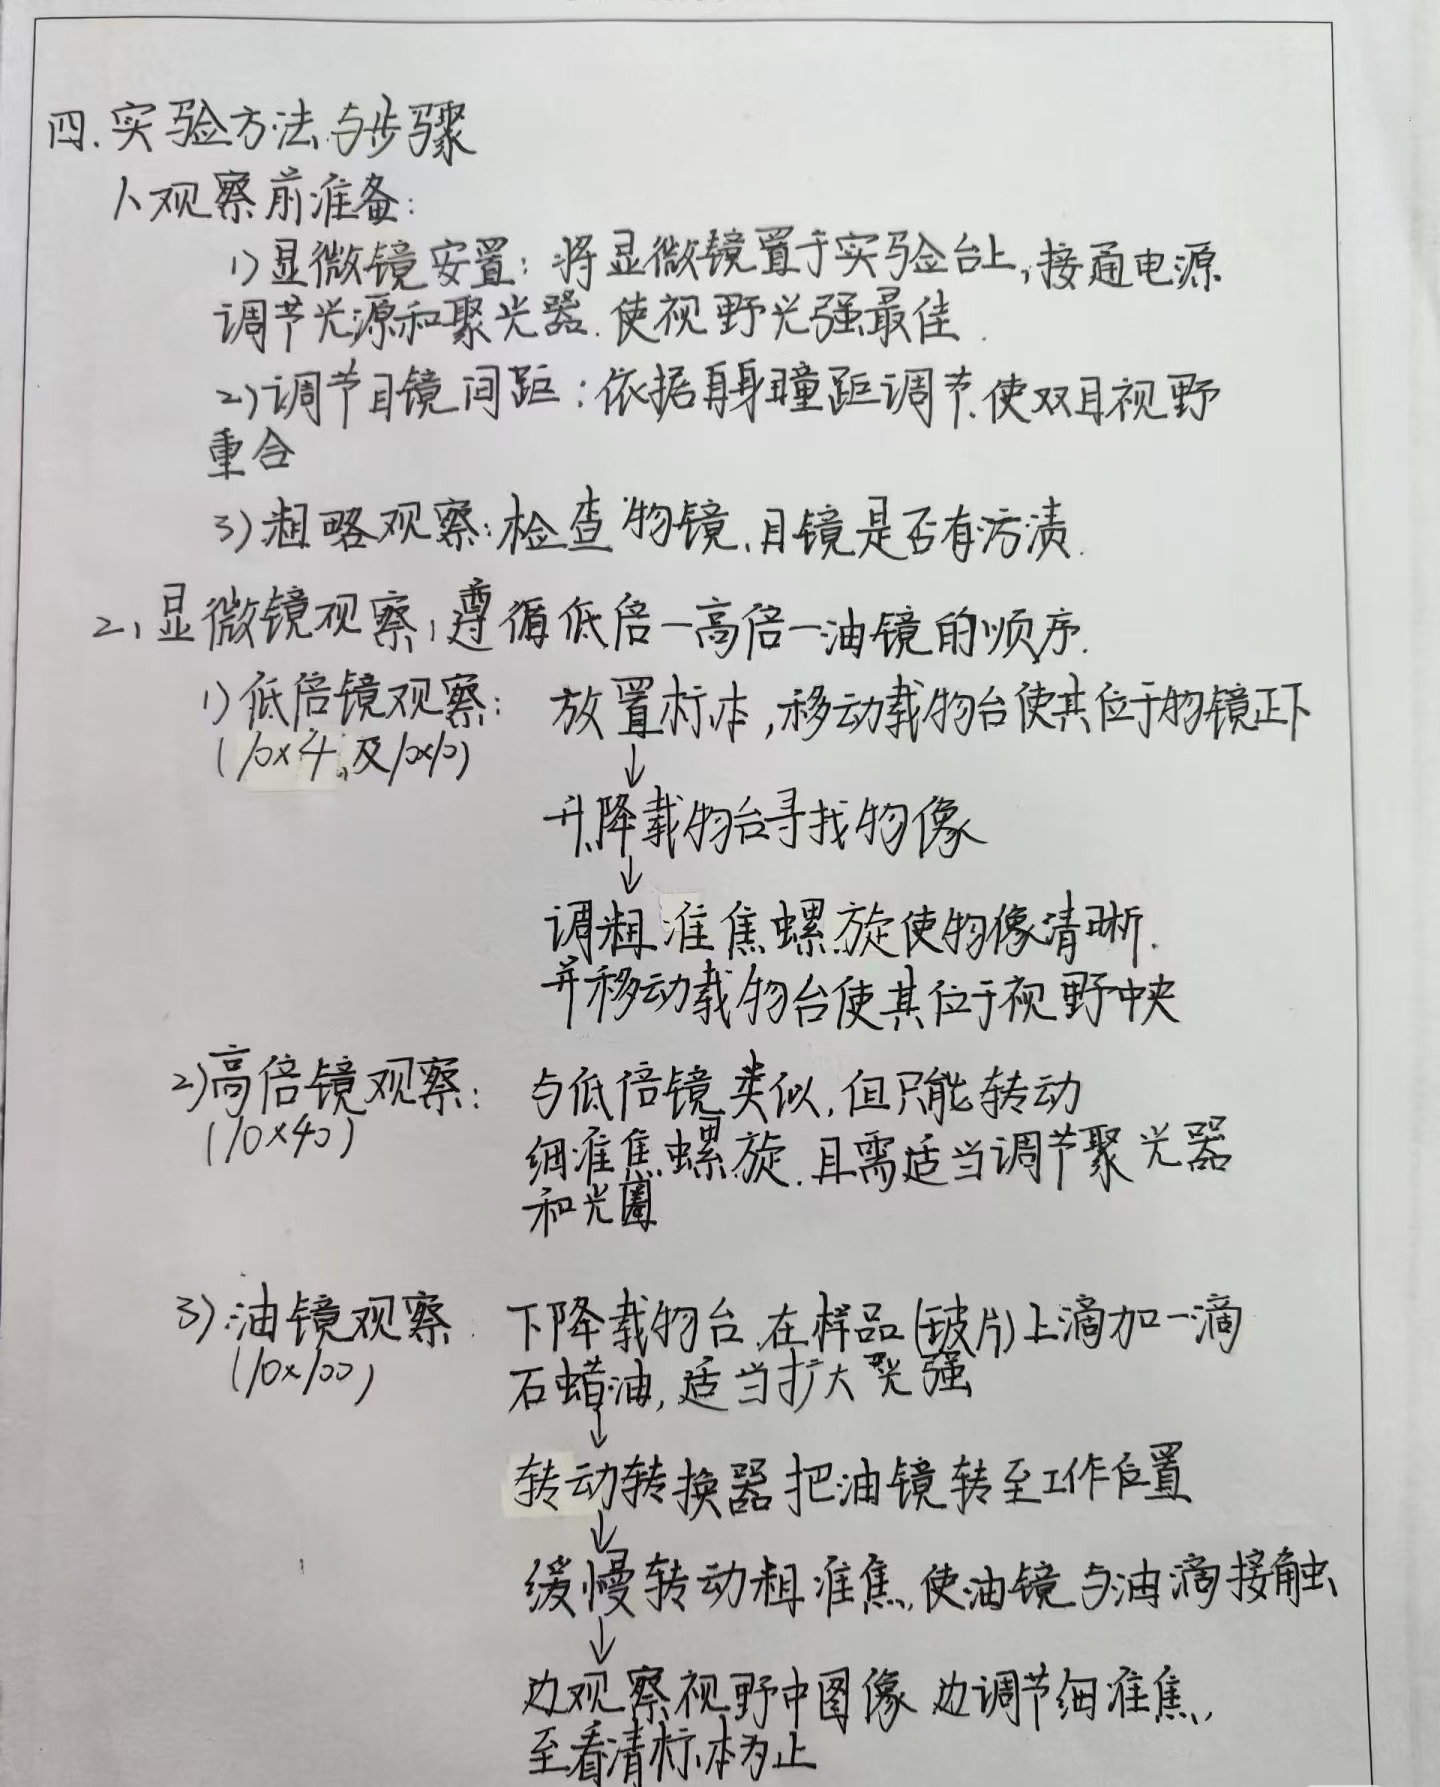 四.实验方法与步骤
1、观察前准备:
1)显微镜安置:将显微镜置于实验台上,接通电源
调节光源和聚光器.使视野光强最佳.
2)调节目镜间距:依据自身瞳距调节.使双目视野
重合
3)粗略观察:检查物镜、目镜是否有污渍.
2、显微镜观察,遵循低倍—高倍—油镜的顺序.
1)低倍镜观察: 放置标本,移动载物台使其位于物镜正下
(10×4、及10×10)
↓
升降载物台寻找物像
↓
调粗准焦螺旋使物像清晰.
并移动载物台使其位于视野中央
2)高倍镜观察: 与低倍镜类似,但只能转动
(10×40)
细准焦螺旋.且需适当调节聚光器
和光圈
3)油镜观察. 下降载物台.在样品(玻片)上滴加一滴
(10×100)
石蜡油,适当扩大光强
↓
转动转换器把油镜转至工作位置
↓
缓慢转动粗准焦,使油镜与油滴接触
↓
边观察视野中图像 边调节细准焦,
至看清标本为止